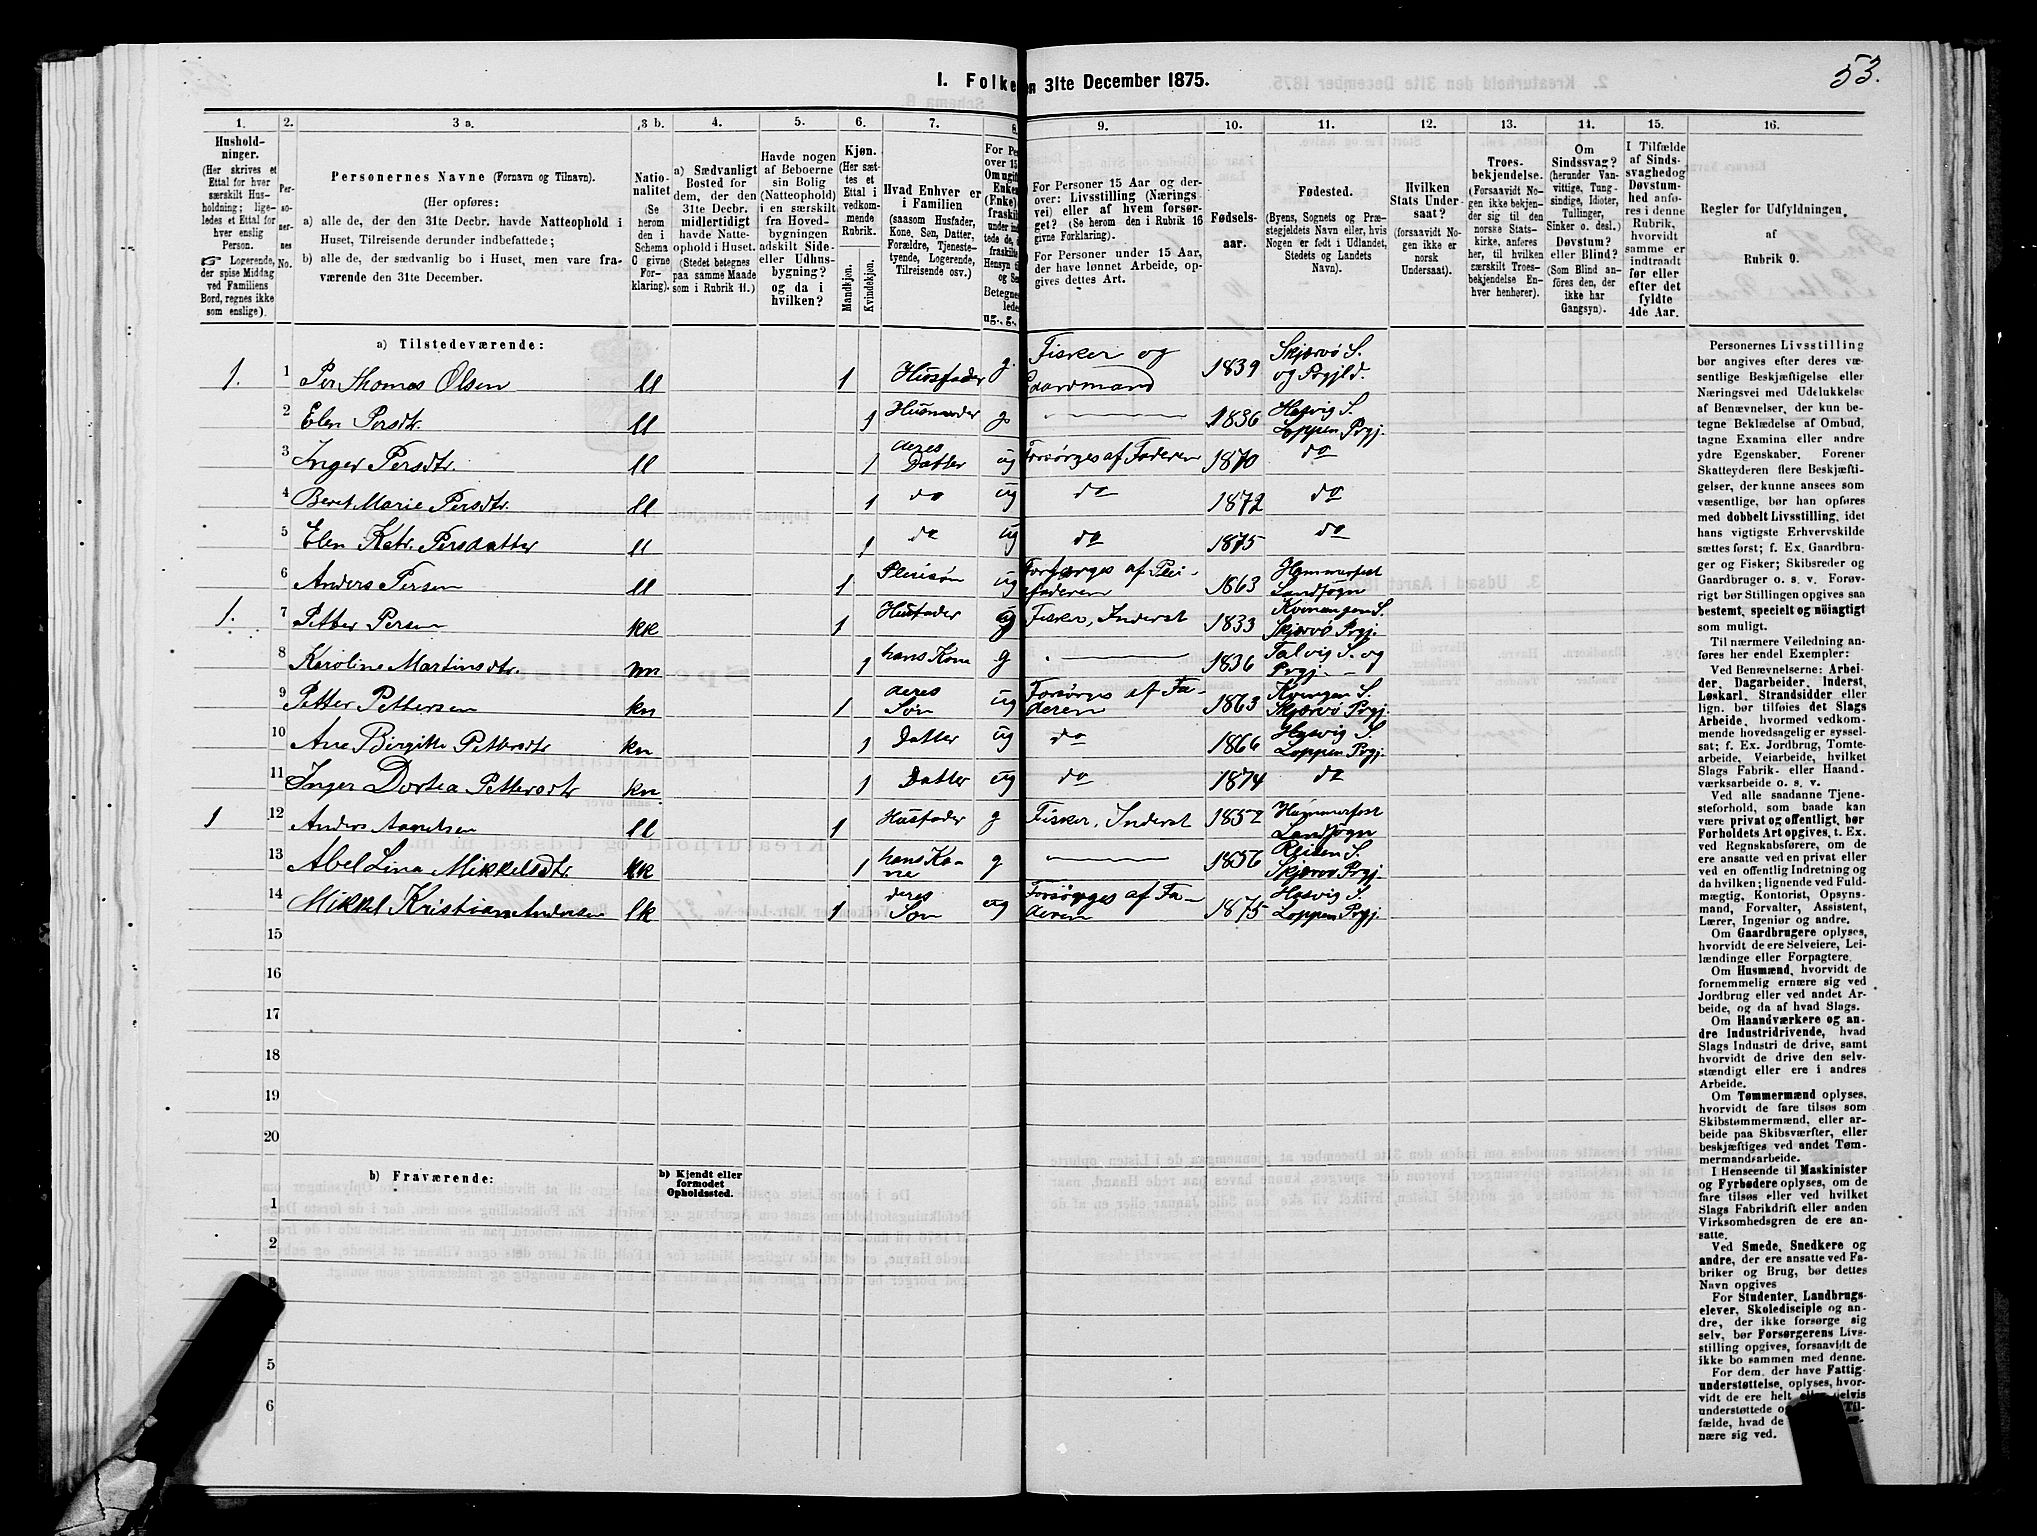 53.
I. Folke en 31te December 1875.
1.
Hushold-
ninger.
(Her skrives et
Ettal for hver
særskilt Hus-
holdning; lige-
ledes et Ettal for
hver enslig
Person.
☞ Logerende,
der spise Middag
ved Familiens
Bord, regnes ikke
som enslige).
2.
Per-
so-
ner-
nes
No.
3 a.
Personernes Navne (Fornavn og Tilnavn).
(Her opføres:
a) alle de, der den 31te Decbr. havde Natteophold i
Huset, Tilreisende derunder indbefattede;
b) alle de, der sædvanlig bo i Huset, men vare fra-
værende den 31te December.
3 b.
Natio-
nalitet
(Se
herom
den i
Schema
C givne
For-
klaring).
4.
a) Sædvanligt
Bosted for
dem, der den
31te Decbr.
midlertidigt
havde Natte-
ophold i Huset.
(Stedet betegnes
paa samme Maade
som i Rubrik 11.)
5.
Havde nogen
af Beboerne
sin Bolig
(Natteophold)
i en særskilt
fra Hoved-
bygningen
adskilt Side-
eller Udhus-
bygning?
og da i
hvilken?
6.
Kjøn.
(Her sæt-
tes et
Ettal i
vedkom-
mende
Rubrik.
Mandkjøn.
Kvindekjøn.
7.
Hvad Enhver er
i Familien
(saasom Husfader,
Kone, Søn, Datter,
Forældre, Tjeneste-
tyende, Logerende,
Tilreisende osv.)
8.
For Pe
over 15
Om ugift
Enken
(Fnke),
fraskilt
under ind
tede de, d
fraskilte
Hensyn ti
og Se
Betegnes
lede
ug., g.,
9.
For Personer 15 Aar og der-
over: Livsstilling (Nærings-
vei) eller af hvem forsør-
get? (Se herom den i Rubrik 16
givne Forklaring).
For Personer under 15 Aar,
der have lønnet Arbeide, op-
gives dettes Art.
10.
Fødsels-
aar.
11.
Fødested.
(Byens, Sognets og Præ-
stegjeldets Navn eller, hvis
Nogen er født i Udlandet,
Stedets og Landets
Navn).
12.
Hvilken
Stats Under-
saat?
(forsaavidt No-
gen ikke er
norsk
Undersaat).
13.
Troes-
bekjendelse.
(Forsaavidt No-
gen ikke bekjen-
der sig til den
norske Stats-
kirke, anføres
her, til hvilken
særskilt Troes-
bekjendelse En-
hver henhører).
14.
Om
Sindssvag?
(herunder Van-
vittige, Tung-
sindige, Idioter,
Tullinger,
Sinker o. desl.)
Døvstum?
eller Blind?
(Som Blind an-
føres den, der
ikke har
Gangsyn).
15.
I Tilfælde
af Sinds-
svaghed og
Døvstum-
hed anfø-
res i denne
Rubrik,
hvorvidt
samme er
indtraadt
før eller
efter det
fyldte
4de Aar.
16.
Regler for Udfyldningen.
af
Rubrik 9.
a) Tilstedeværende:
1. 1 Per Thomas Olsen ll 1 Husfader g. Fisker og Gaardmand 1839 Skjærvø S. og Prgjld.
2 Elen Persdtr. ll 1 Husmoder g 1836 Hasvig S. Loppen Prgj.
3 Inger Persdtr ll 1 deres Datter ug Forsørges af Faderen 1870 do
4 Beret Marie Persdtr. ll 1 do ug do 1872 do
5 Elen Katr. Persdatter ll 1 do ug do 1875 do
6 Anders Persen ll 1 Pleiesøn ug Forsørges af Plei-efaderen 1863 Hammerfest Landsogn
1. 7 Petter Persen kk 1 Husfader g Fisker, Inderst 1833 Kvænangen S. Skjærvø Prgj.
8 Karoline Martinsdtr. nn 1 hans Kone g 1836 Talvig S. og Prgj.
9 Petter Pettersen kn 1 deres Søn ug Forsørges af Fa-deren 1863 Kvængen S. Skjærvø Prgj.
10 Ane Birgitte Pettersdtr kn 1 Datter ug do 1866 Hasvig S. Loppen Prgj.
11 Inger Dortea Pettersdtr kn 1 Datter ug do 1874 do
1 12 Anders ll 1 Husfader g Fisker, Inderst 1852 Hammerfest Landsogn
13 Abel Lina Mikkelsdtr kk 1 hans Ko-ne g 1856 Reisen S. Skjærvø Prgj.
14 Mikkel Kristian Andersen lk 1 deres Søn ug Forsørges af Fa-deren 1875 Hasvig S. Loppen Prgj.
15
16
17
18
19
20
b) Fraværende:
b) Kjendt eller
formodet
Opholdssted.
1
2
3
5
6
Personernes Livsstilling
bør angives efter deres væ-
sentlige Beskjæftigelse eller
Næringsvei med Udelukkelse
af Benævnelser, der kun be-
tegne Beklædelse af Ombud,
tagne Examina eller andre
ydre Egenskaber. Forener
Skatteyderen flere Beskjæfti-
gelser, der kunne ansees som
væsentlige, bør han opføres
med dobbelt Livsstilling, idet
hans vigtigste Erhvervskilde
sættes først; f. Ex. Gaardbru-
ger og Fisker; Skibsreder og
Gaardbruger o. s. v. Forøv-
rigt bør Stillingen opgives saa
bestemt, specielt og nöiagtigt
som muligt.
Til nærmere Veiledning an-
føres her endel Exempler:
Ved Benævnelserne: Arbei-
der, Dagarbeider, Inderst,
Løskarl, Strandsidder eller
lign. bør tilføies det Slags
Arbeide, hvormed vedkom-
mende hovedsagelig er syssel-
sat; f. Ex. Jordbrug, Tomte-
arbeide, Veiarbeide, hvilket
Slags Fabrik- eller Haand-
værksarbeide o. s. v.
Ved alle saadanne Tjene-
steforhold, som baade kan
være privat og offentligt, bør
Forholdets Art opgives, t. Ex.
ved Regnskabsførere, om de
ere ansatte ved en privat eller
ved en offentlig Indretning og
da hvilken; lignende ved Fuld-
mægtig, Kontorist, Opsyns-
mand, Forvalter, Assistent,
Lærer, Ingeniør og andre.
Om Gaardbrugere oplyses,
hvorvidt de ere Selveiere, Lei-
lændinge eller Forpagtere.
Om Husmænd, hvorvidt de
fornemmelig ernære sig ved
Jordbrug eller ved andet Ar-
beide, og da af hvad Slags.
Om Haandværkere og an-
dre Industridrivende, hvad
Slags Industri de drive, samt
hvorvidt de drive den selv-
stændigt eller ere i andres
Arbeide.
Om Tømmermænd oplyses,
hvorvidt de fare tilsøs som
Skibstømmermænd, eller ar-
beide paa Skibsværfter, eller
beskjæftiges ved andet Tøm-
mermandsarbeide.
I Henseende til Maskinister
og Fyrbødere oplyses, om de
fare tilsøs eller ved hvilket
Slags Fabrikdrift eller anden
Virksomhedsgren de ere an-
satte.
Ved Smede, Snedkere og
andre, der ere ansatte ved Fa-
briker og Brug, bør dettes
Navn opgives
For Studenter, Landbrugs-
elever, Skoledisciple og an-
dre, der ikke forsørge sig
selv, bør Forsørgerens Livs-
stilling opgives, forsaavidt de
ikke bo sammen med denne.
For dem, der have Fattig-
understøttelse, oplyses, hvor-
vidt de ere helt eller delvis
understøttede o Til-
fælde, hvad de er-
nære sig ved.